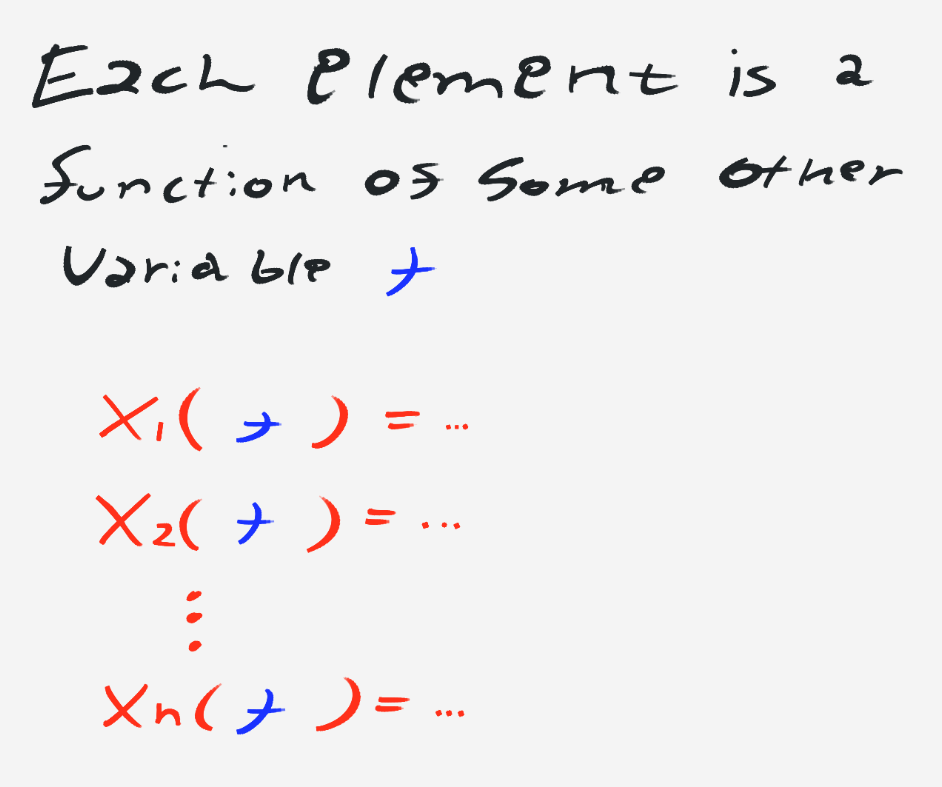 Each element is a
function of some other
variable t
X₁( t ) = ...
X₂( t ) = ...
⋮
Xn( t ) = ...